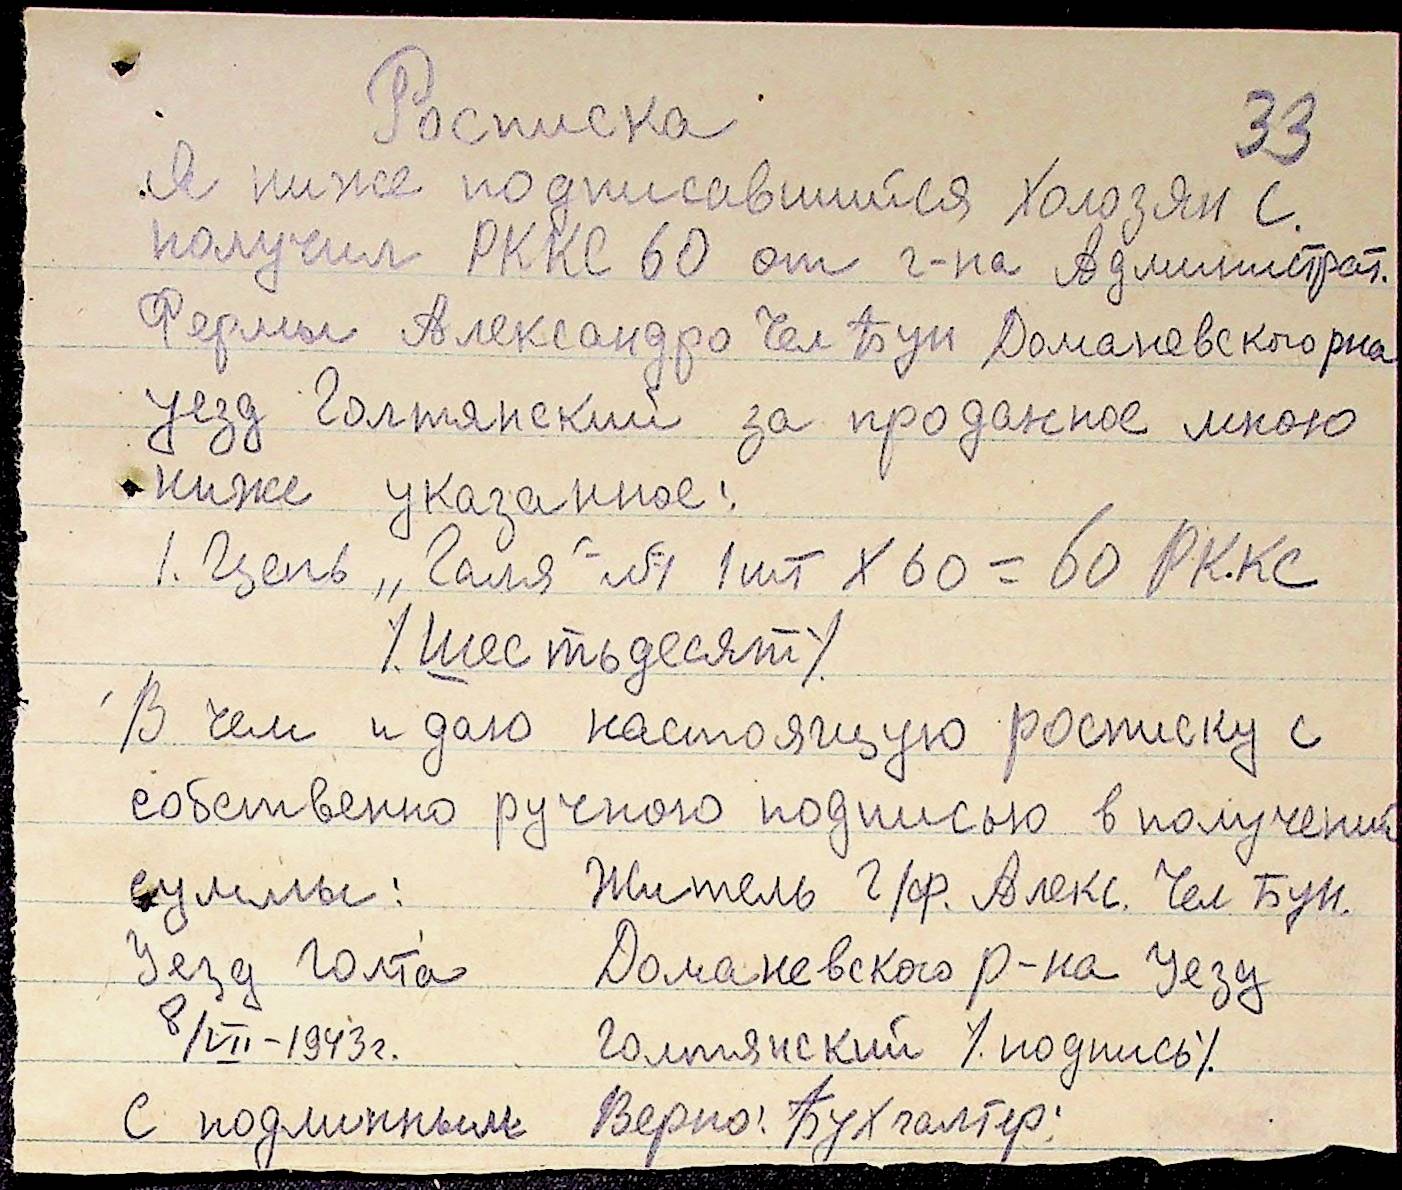 Росписка
33
Я ниже подписавшийся Холозян С.
получил РККС 60 от г-на Администрат.
Фермы Александро Чел Бун Доманевского рна
уезд Голтянский за проданное мною
ниже указанное:
1. Цепь „Галя“ №1 1 шт X 60 = 60 РК.КС
/. Шестьдесят /.
В чем и даю настоящую росписку с
собственно ручною подписью в получений
суммы: Житель г/ф. Алекс. Чел Бун.
Уезд Голта Доманевского р-на Уезд
8/VII-1943г. Голтянский /. подпись /.
С подлинным Верно: Бухгалтер: